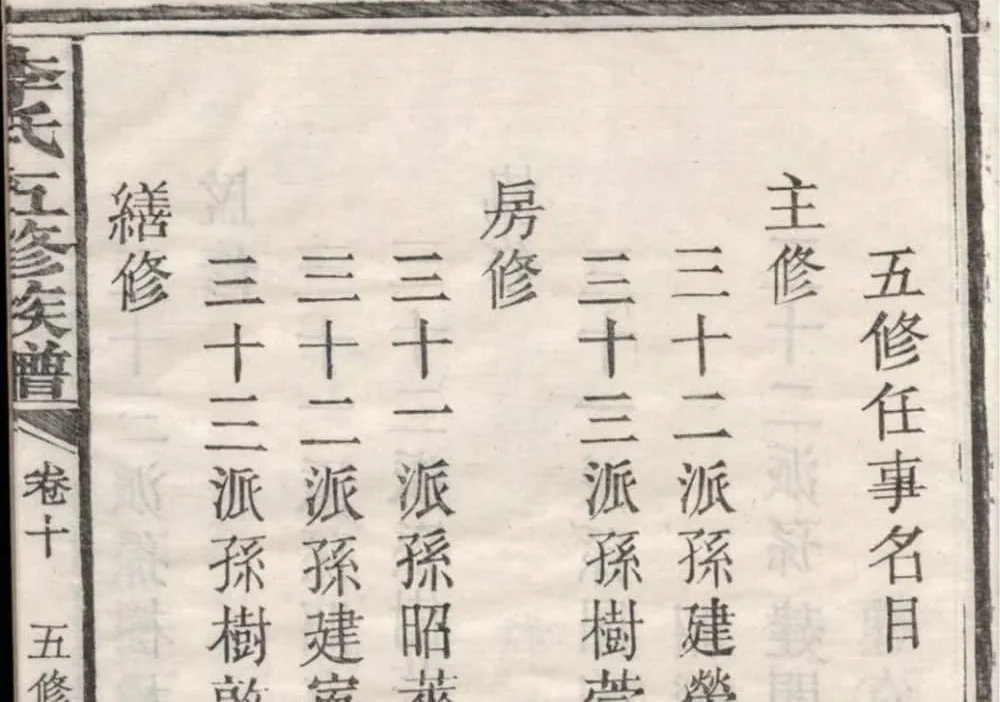 五修任事名目
主修
三十二派孫建榮
三十三派孫樹
房修
三十一派孫昭
三十二派孫建
三十三派孫樹敦
繕修
李氏五修族譜
卷十
五修